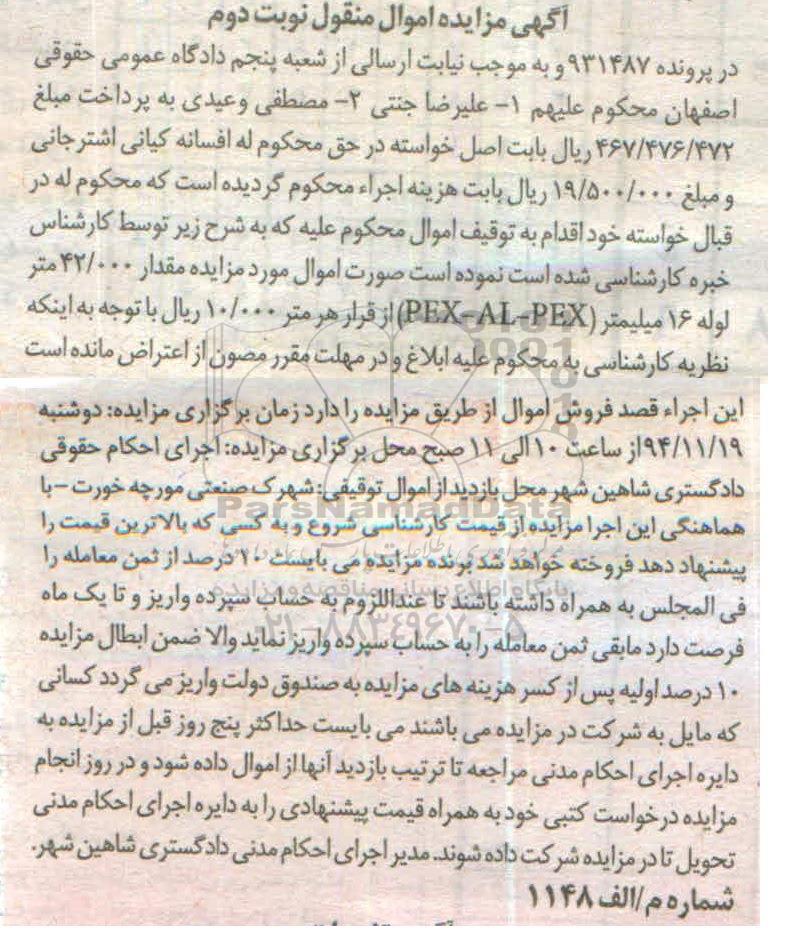 آگهی مزایده اموال منقول نوبت دوم
در پرونده ۹۳۱۴۸۷ و به موجب نیابت ارسالی از شعبه پنجم دادگاه عمومی حقوقی
اصفهان محکوم علیهم ۱- علیرضا جنتی ۲- مصطفی وعیدی به پرداخت مبلغ
۴۶۷/۴۷۶/۴۷۲ ریال بابت اصل خواسته در حق محکوم له افسانه کیانی اشترجانی
و مبلغ ۱۹/۵۰۰/۰۰۰ ریال بابت هزینه اجراء محکوم گردیده است که محکوم له در
قبال خواسته خود اقدام به توقیف اموال محکوم علیه که به شرح زیر توسط کارشناس
خبره کارشناسی شده است نموده است صورت اموال مورد مزایده مقدار ۴۲/۰۰۰ متر
لوله ۱۶ میلیمتر (PEX-AL-PEX) از قرار هر متر ۱۰/۰۰۰ ریال با توجه به اینکه
نظریه کارشناسی به محکوم علیه ابلاغ و در مهلت مقرر مصون از اعتراض مانده است
این اجراء قصد فروش اموال از طریق مزایده را دارد زمان برگزاری مزایده: دوشنبه
۹۴/۱۱/۱۹ از ساعت ۱۰ الی ۱۱ صبح محل برگزاری مزایده: اجرای احکام حقوقی
دادگستری شاهین شهر محل بازدید از اموال توقیفی: شهرک صنعتی مورچه خورت - با
هماهنگی این اجرا مزایده از قیمت کارشناسی شروع و به کسی که بالاترین قیمت را
پیشنهاد دهد فروخته خواهد شد برنده مزایده می بایست ۱۰ درصد از ثمن معامله را
فی المجلس به همراه داشته باشند تا عنداللزوم به حساب سپرده واریز و تا یک ماه
فرصت دارد مابقی ثمن معامله را به حساب سپرده واریز نماید والا ضمن ابطال مزایده
۱۰ درصد اولیه پس از کسر هزینه های مزایده به صندوق دولت واریز می گردد کسانی
که مایل به شرکت در مزایده می باشند می بایست حداکثر پنج روز قبل از مزایده به
دایره اجرای احکام مدنی مراجعه تا ترتیب بازدید آنها از اموال داده شود و در روز انجام
مزایده درخواست کتبی خود به همراه قیمت پیشنهادی را به دایره اجرای احکام مدنی
تحویل تا در مزایده شرکت داده شوند. مدیر اجرای احکام مدنی دادگستری شاهین شهر.
شماره م/الف ۱۱۴۸
ParsNamadData
پایگاه اطلاع رسانی مناقصه و مزایده
۰۲۱-۸۸۳۴۹۶۷۰-۵